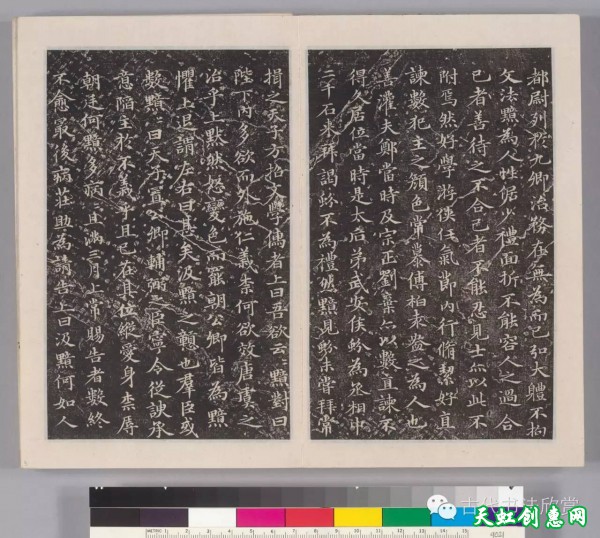 都尉列於九卿治務在無為而已弘大體不拘
文法黯為人性倨少禮面折不能容人之過合
己者善待之不合己者不能忍見士亦以此不
附焉然好學游俠任氣節內行脩絜好直
諫數犯主之顏色常慕傅柏袁盎之為人也
善灌夫鄭當時及宗正劉棄亦以數直諫不
得久居位當時是太后弟武安侯蚡為丞相中
二千石來拜謁蚡不為禮然黯見蚡未嘗拜常
揖之天子方招文學儒者上曰吾欲云云黯對曰
陛下內多欲而外施仁義柰何欲效唐虞之
治乎上默然怒變色而罷朝公卿皆為黯
懼上退謂左右曰甚矣汲黯之戇也羣臣或
數黯黯曰天子置公卿輔弼之臣寧令從諛承
意陷主於不義乎且已在其位縱愛身柰辱
朝廷何黯多病且滿三月上常賜告者數終
不愈最後病莊助為請告上曰汲黯何如人
古代书法欣赏
天虹创惠网